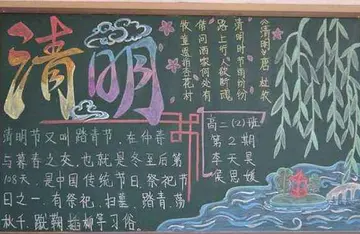 清明
《清明》唐·杜牧
清明时节雨纷纷
路上行人欲断魂
借问酒家何处有
牧童遥指杏花村
高二(2)班
第2期
李天昊
侯思媛
清明节又叫踏青节,在仲春
与暮春之交,也就是冬至后第
108天,是中国传统节日,祭祀节
日之一,有祭祀、扫墓、踏青、荡
秋千、蹴鞠、插柳等习俗。